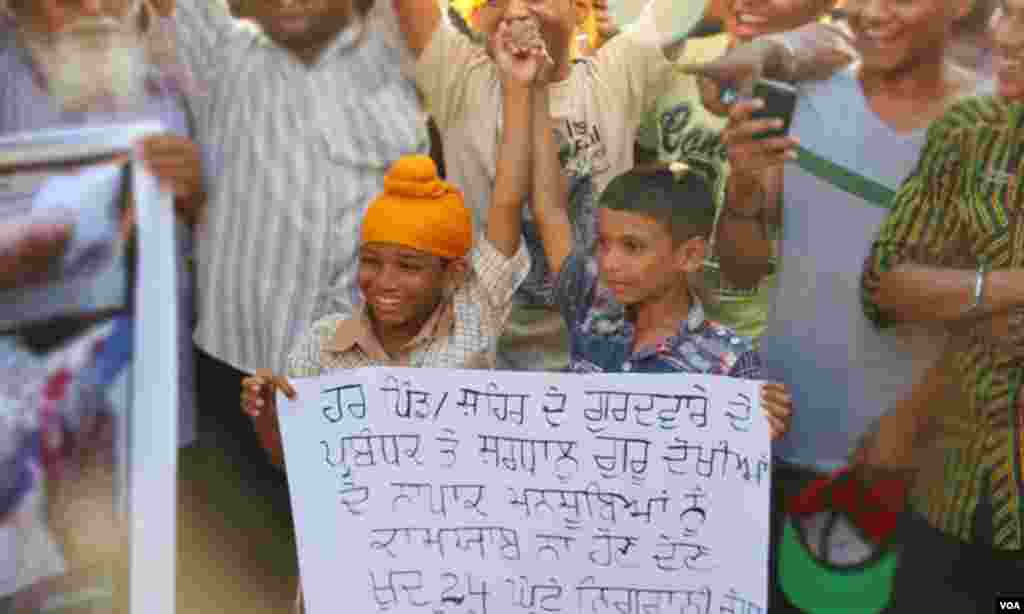 ਹਰ ਪਿੰਡ/ਸ਼ਹਿਰ ਦੇ ਗੁਰਦਵਾਰੇ ਦੇ
ਪ੍ਰਬੰਧਕ ਤੇ ਸ਼ਰਧਾਲੂ ਗੁਰੂ ਦੋਖੀਆਂ
ਦੇ ਨਾਪਾਕ ਮਨਸੂਬਿਆਂ ਨੂੰ
ਕਾਮਯਾਬ ਨਾ ਹੋਣ ਦੇਣ
ਖ਼ੁਦ 24 ਘੰਟੇ ਨਿਗਰਾਨੀ
VOA